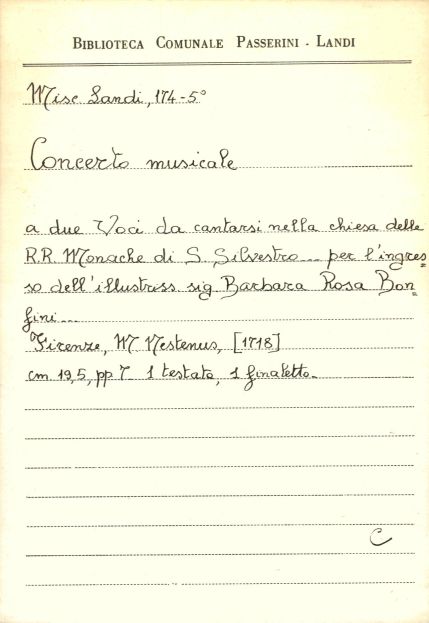 BIBLIOTECA COMUNALE PASSERINI - LANDI
Misc Landi, 174-5°
Concerto musicale
a due Voci da cantarsi nella chiesa delle
R.R. Monache di S. Silvestro... per l'ingres=
so dell'illustriss sig Barbara Rosa Bon=
fini...
Firenze, M Nestenus, [1718]
cm 19,5, pp 7 1 testata, 1 finaletto.
C